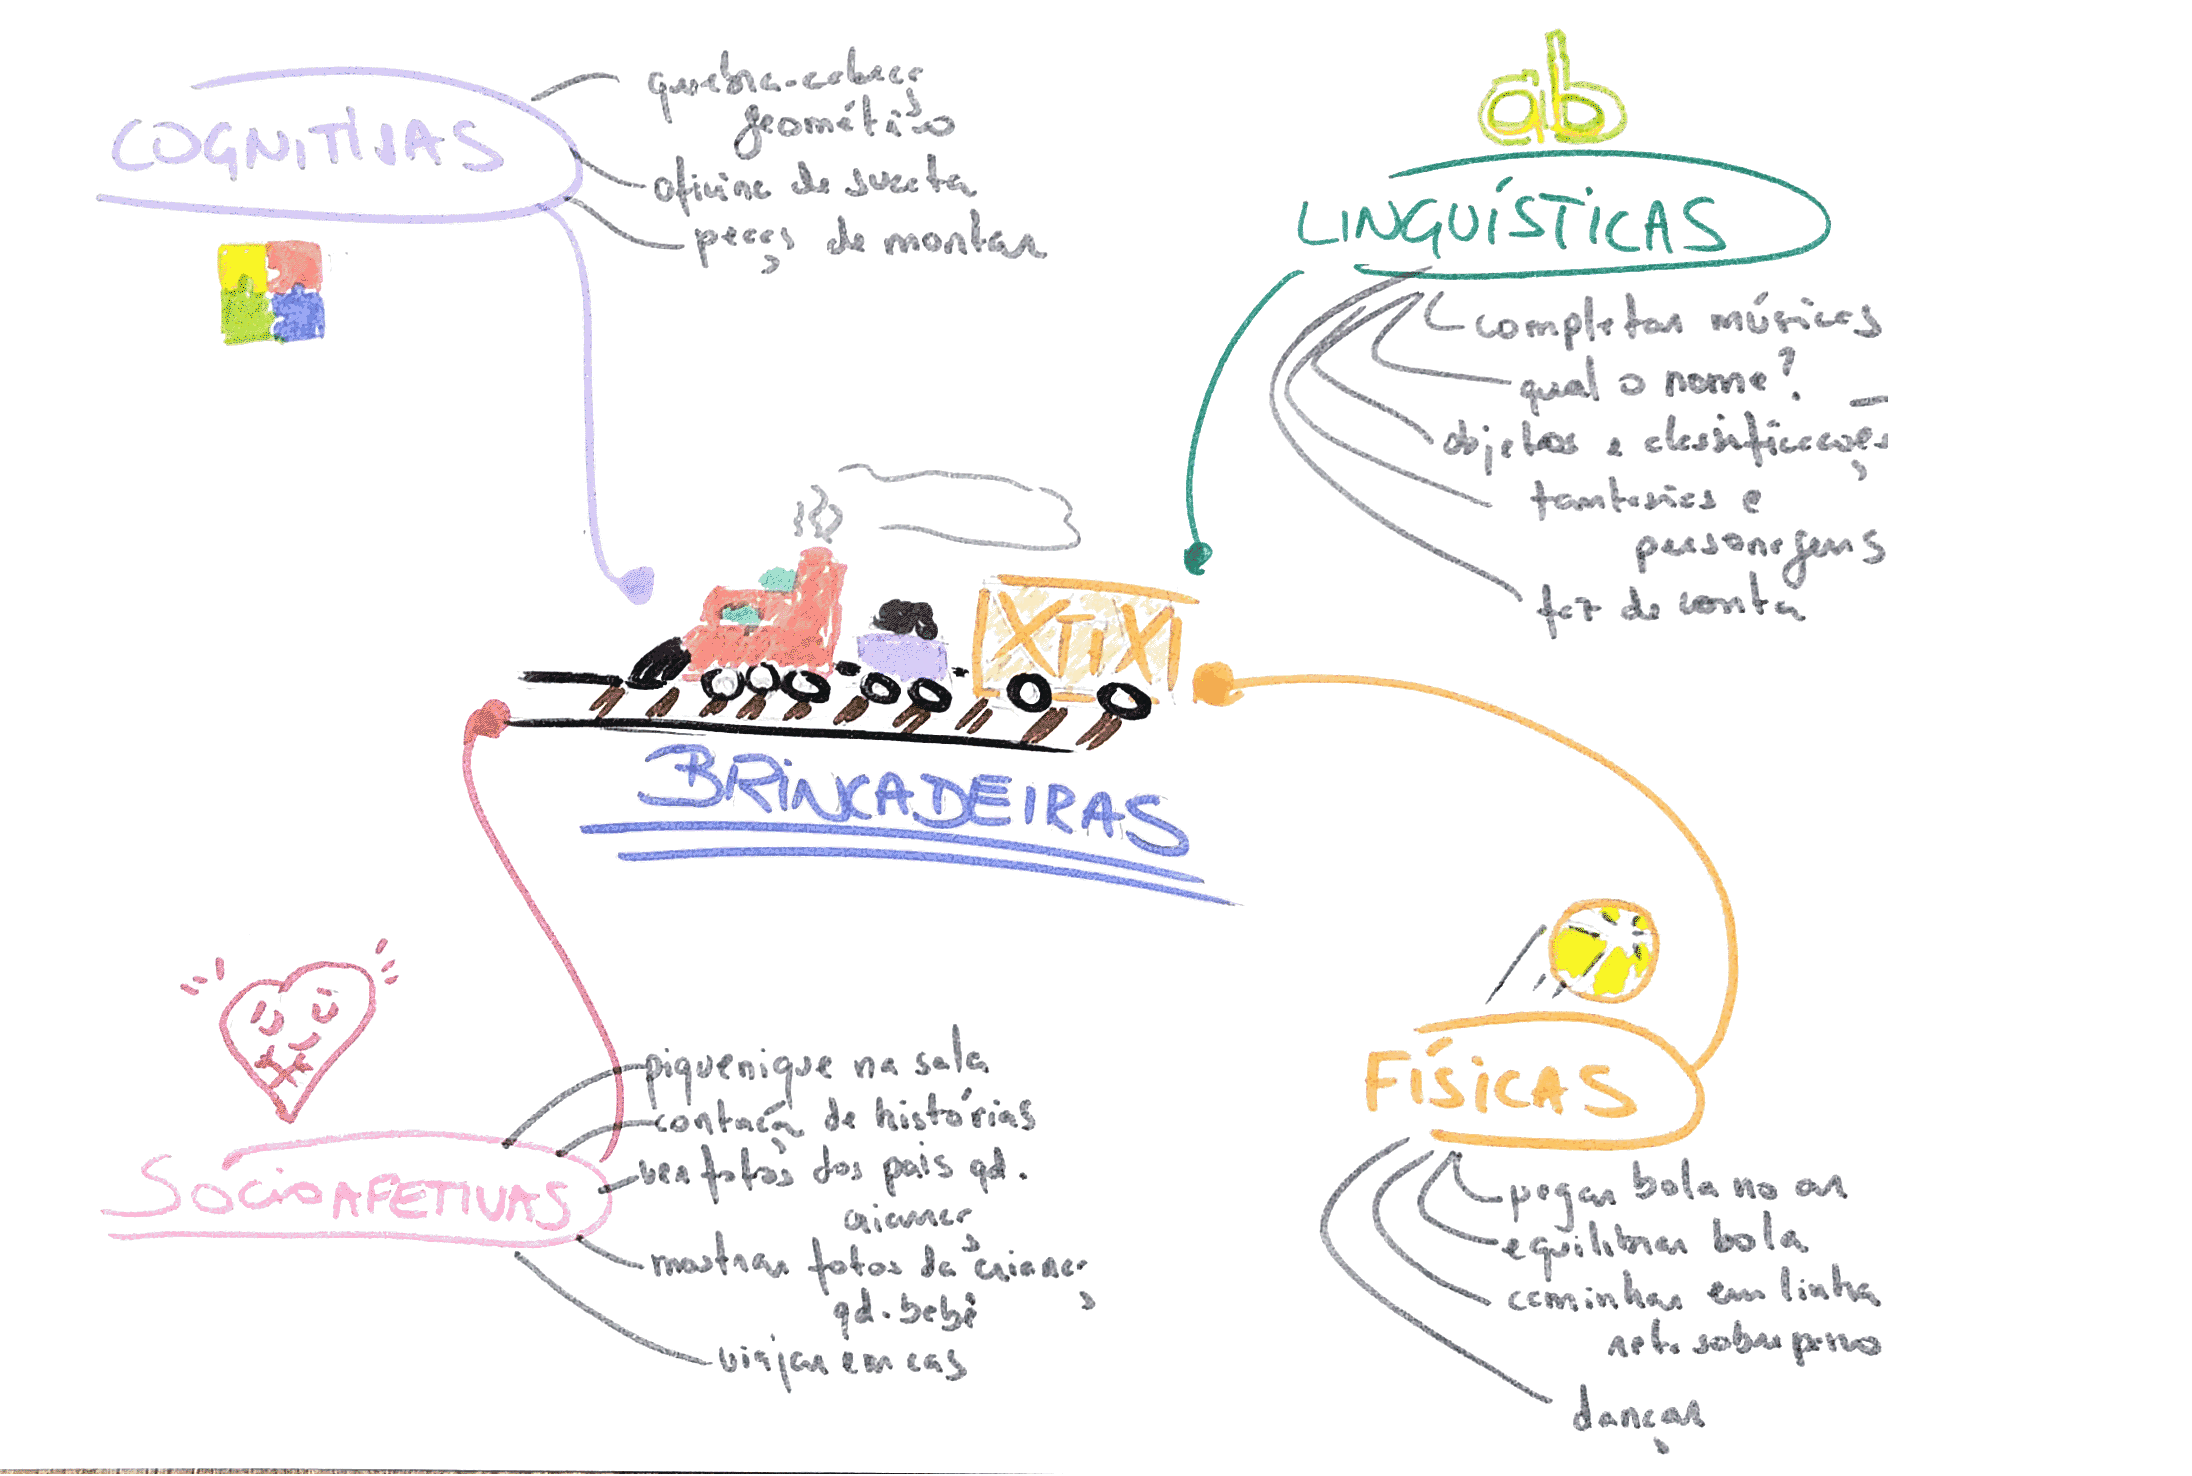 COGNITIVAS
quebra-cabeça
geométrico
oficina de sucata
peças de montar
ab
LINGUÍSTICAS
completar músicas
qual o nome?
objetos e classificações
fantasias e
personagens
faz de conta
XTiXI
BRINCADEIRAS
SOCIOAFETIVAS
piquenique na sala
contaçã de histórias
ver fotos dos pais qd.
criança
mostrar fotos da criança
qd. bebê
viajar em cas
FÍSICAS
pegar bola no ar
equilibrar bola
caminhar em linha
reta sobre piso
dançar